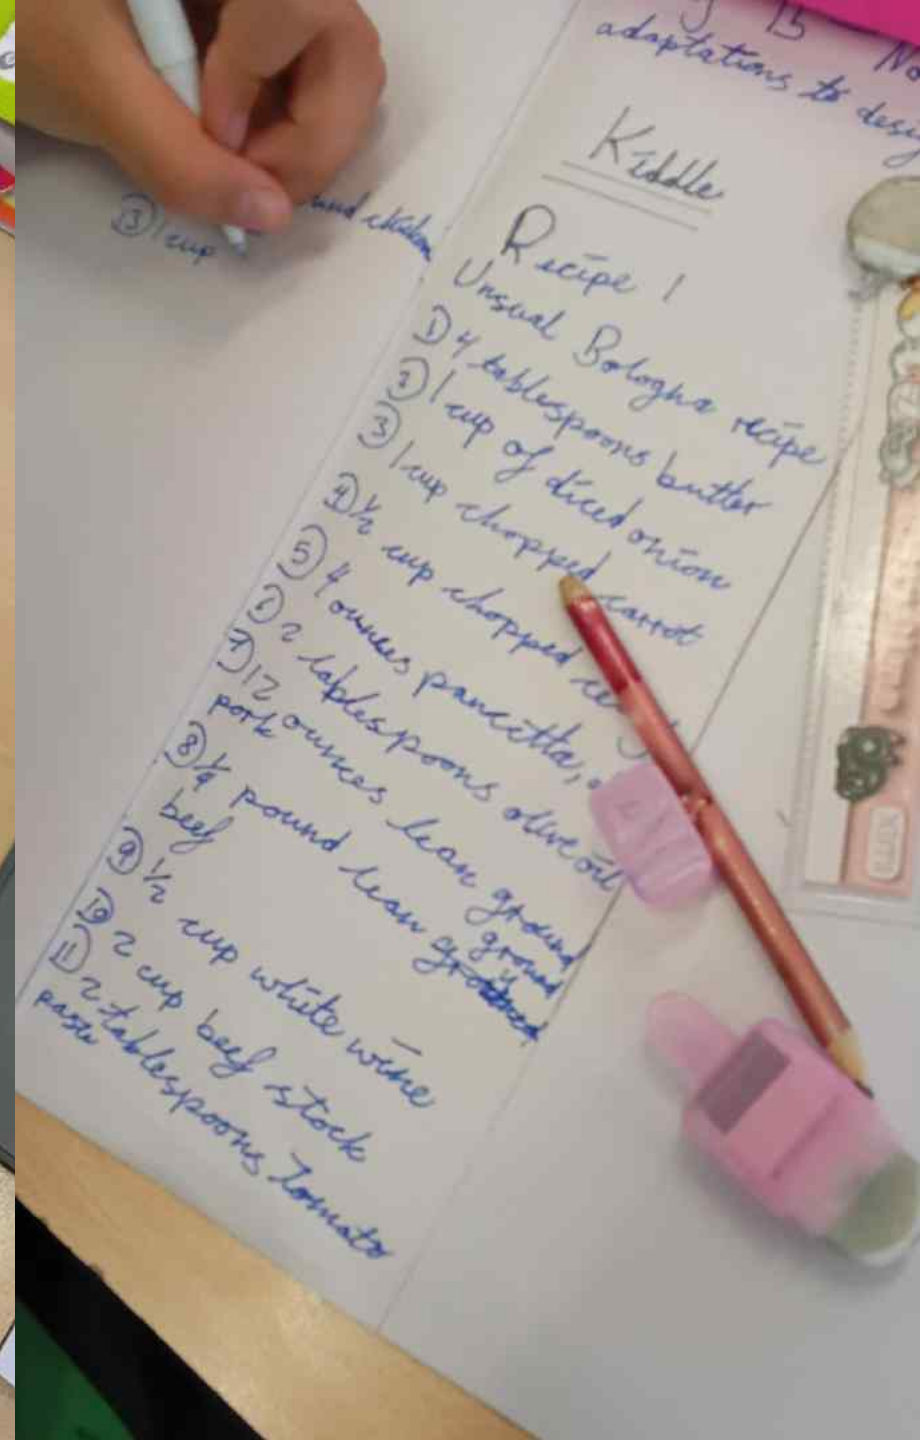 adaptations to
Kiddle
Recipe 1
Unsual Bologna recipe
① 4 tablespoons butter
② 1 cup of diced onion
③ 1 cup chopped carrot
④ ½ cup chopped
⑤ 4 ounces pancetta,
⑥ 2 tablespoons olive oil
⑦ 12 ounces lean ground
pork
⑧ ¼ pound lean ground
beef
⑨ ½ cup white wine
⑩ 2 cup beef stock
⑪ 2 tablespoons Tomato
paste
③ 1 cup